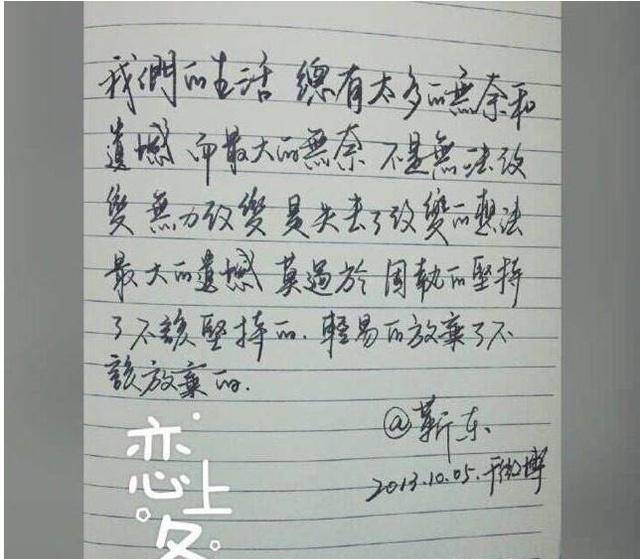 我們的生活 總有太多的無奈和
遺憾 而最大的無奈 不是無法改
變 無力改變 是失去了改變的想法
最大的遺憾 莫過於 固執的堅持
了不該堅持的. 輕易的放棄了不
該放棄的.
@靳东.
2013.10.05.于微博
恋上
冬